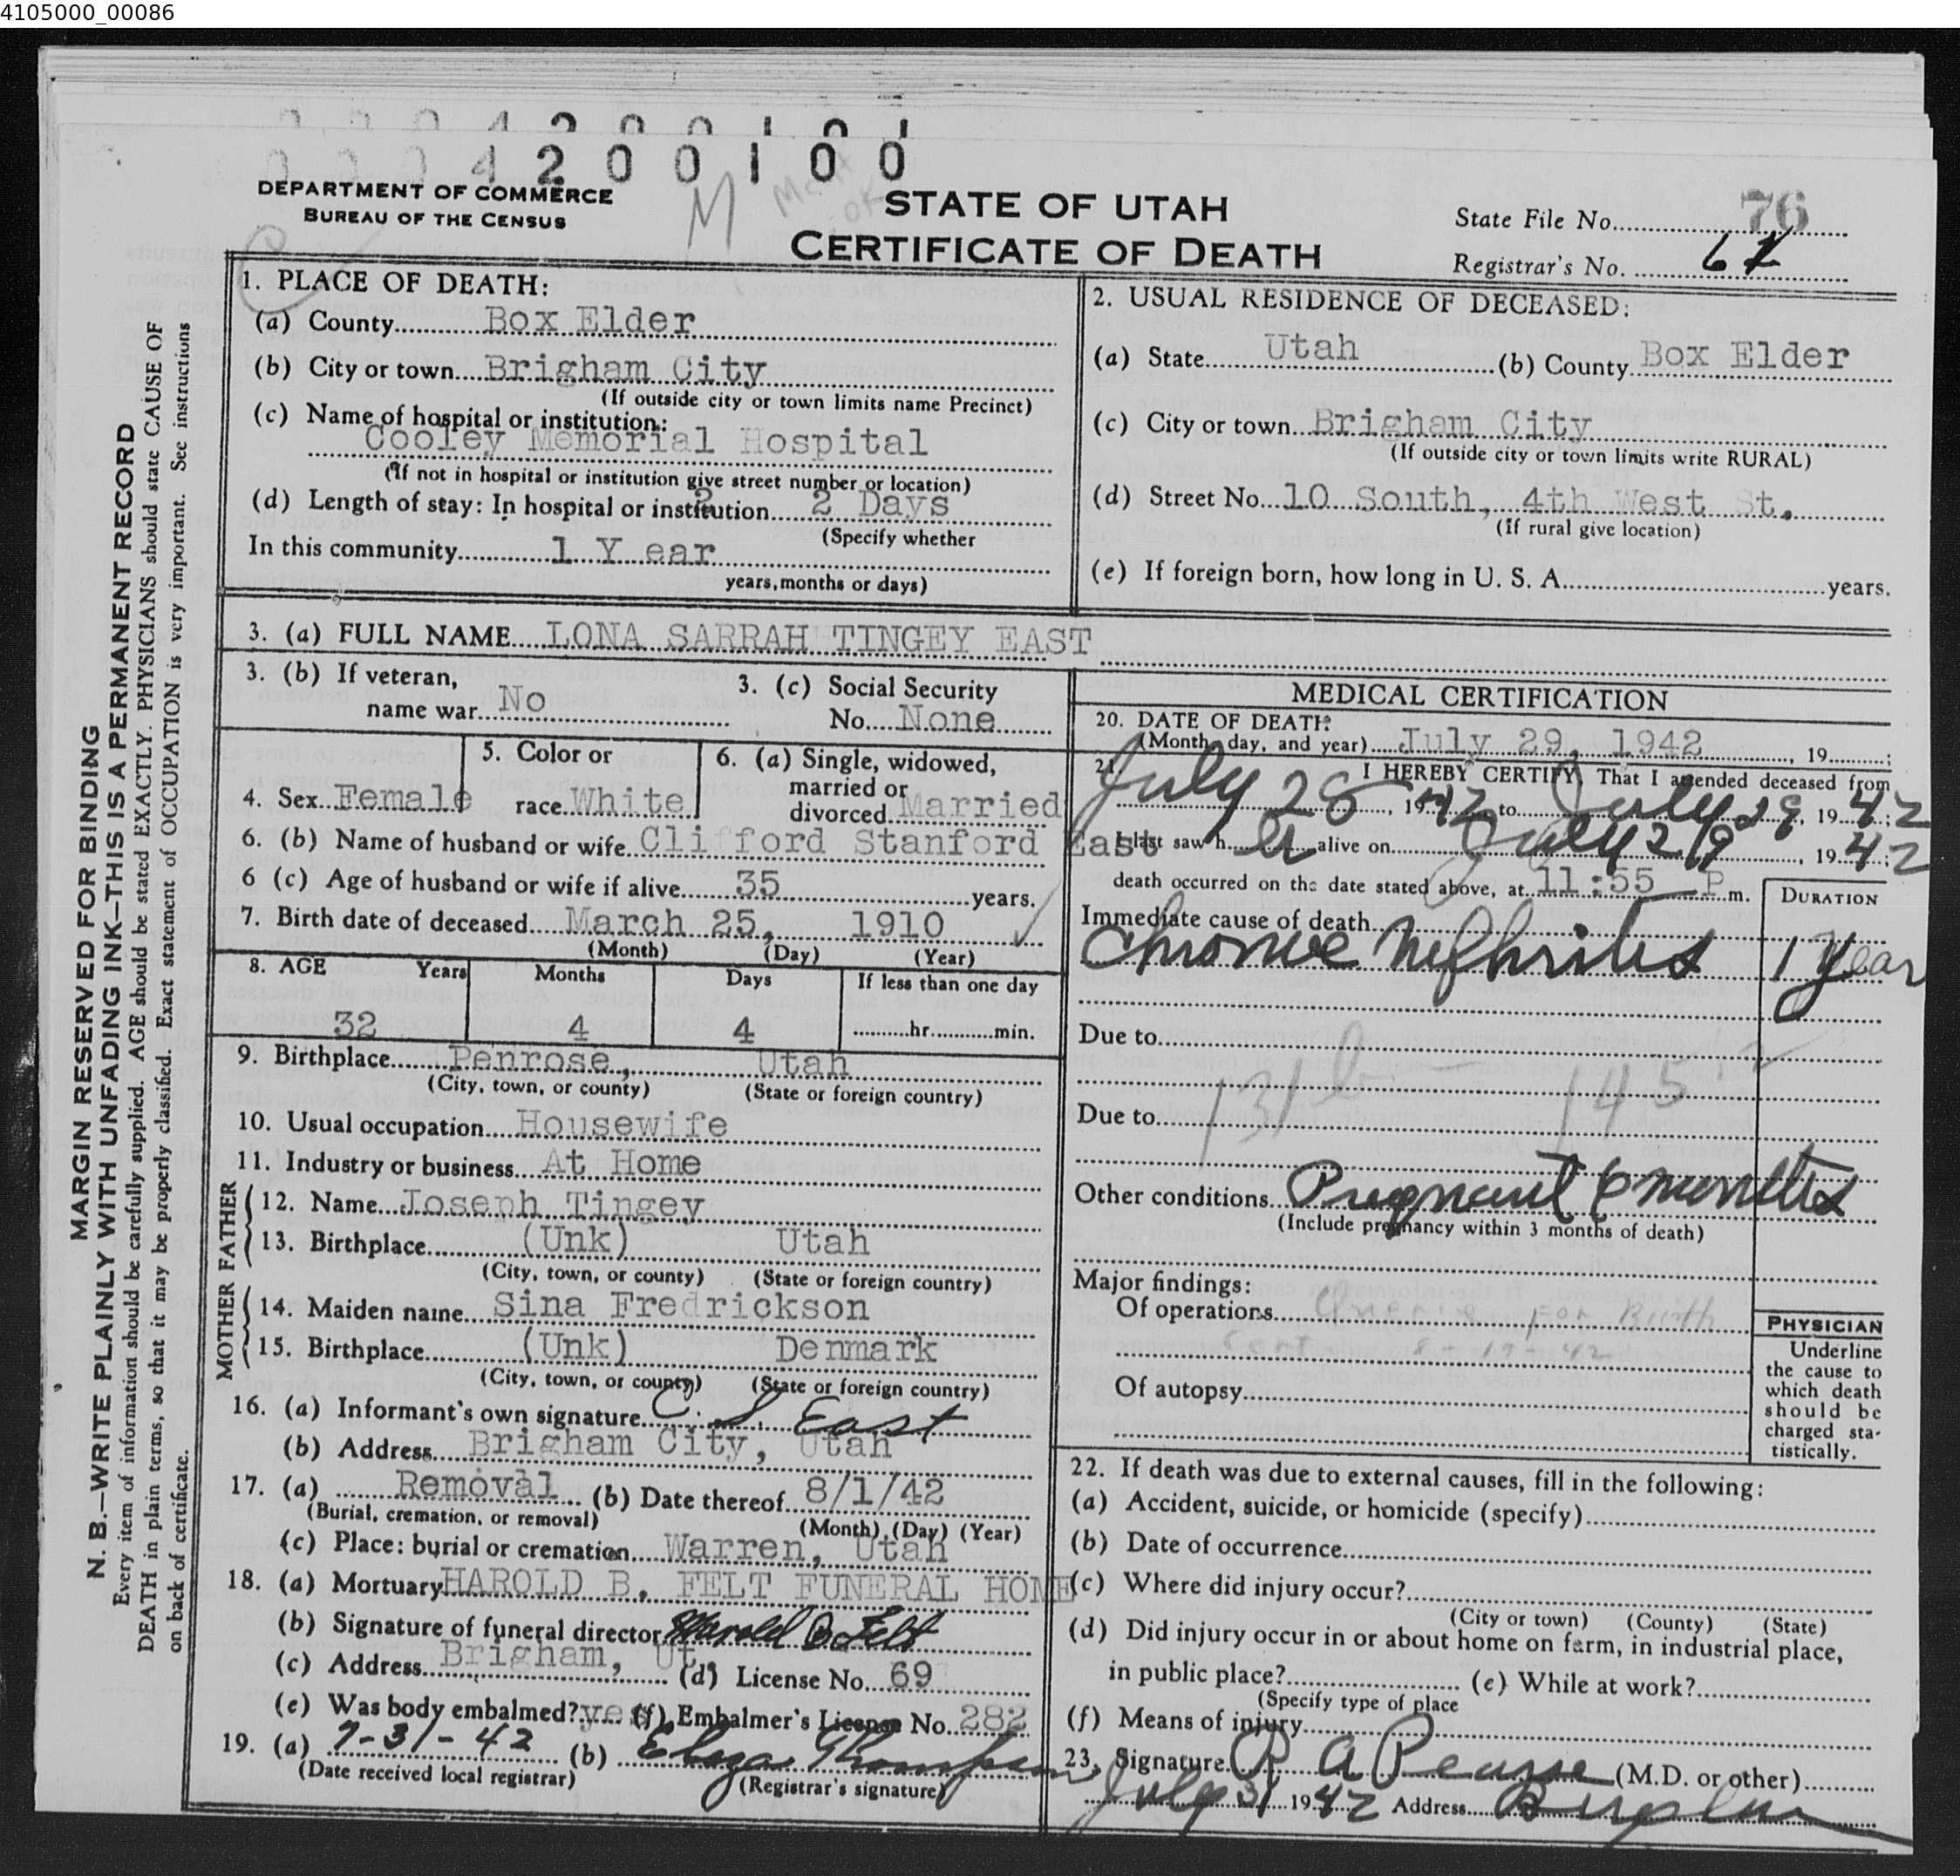 4105000_00086
0004200101
0004200100
DEPARTMENT OF COMMERCE
BUREAU OF THE CENSUS
M
OK
STATE OF UTAH
CERTIFICATE OF DEATH
State File No. 76
Registrar's No. 62
MARGIN RESERVED FOR BINDING
N. B.—WRITE PLAINLY WITH UNFADING INK—THIS IS A PERMANENT RECORD
Every item of information should be carefully supplied. AGE should be stated EXACTLY. PHYSICIANS should state CAUSE OF
DEATH in plain terms, so that it may be properly classified. Exact statement of OCCUPATION is very important. See instructions
on back of certificate.
1. PLACE OF DEATH:
(a) County Box Elder
(b) City or town Brigham City
(If outside city or town limits name Precinct)
(c) Name of hospital or institution:
Cooley Memorial Hospital
(If not in hospital or institution give street number or location)
(d) Length of stay: In hospital or institution 2 Days
(Specify whether
In this community 1 Y ear
years, months or days)
2. USUAL RESIDENCE OF DECEASED:
(a) State Utah (b) County Box Elder
(c) City or town Brigham City
(If outside city or town limits write RURAL)
(d) Street No. 10 South, 4th West St.
(If rural give location)
(e) If foreign born, how long in U. S. A. years.
3. (a) FULL NAME LONA SARRAH TINGEY EAST
3. (b) If veteran,
name war No
3. (c) Social Security
No. None
4. Sex Female
5. Color or
race White
6. (a) Single, widowed,
married or
divorced Married
6. (b) Name of husband or wife Clifford Stanford East
6 (c) Age of husband or wife if alive 35 years.
7. Birth date of deceased March 25, 1910
(Month) (Day) (Year)
8. AGE Years Months Days If less than one day
32 4 4 hr. min.
9. Birthplace Penrose, Utah
(City, town, or county) (State or foreign country)
10. Usual occupation Housewife
11. Industry or business At Home
FATHER
12. Name Joseph Tingey
13. Birthplace (Unk) Utah
(City, town, or county) (State or foreign country)
MOTHER
14. Maiden name Sina Fredrickson
15. Birthplace (Unk) Denmark
(City, town, or county) (State or foreign country)
16. (a) Informant's own signature C. S. East
(b) Address Brigham City, Utah
17. (a) Removal (b) Date thereof 8/1/42
(Burial, cremation, or removal) (Month) (Day) (Year)
(c) Place: burial or cremation Warren, Utah
18. (a) Mortuary HAROLD B. FELT FUNERAL HOME
(b) Signature of funeral director Harold B Felt
(c) Address Brigham, Ut. (d) License No. 69
(e) Was body embalmed? yes (f) Embalmer's License No. 282
19. (a) 7-31-42 (b) Eliza Thompson
(Date received local registrar) (Registrar's signature)
MEDICAL CERTIFICATION
20. DATE OF DEATH:
(Month, day, and year) July 29, 1942, 19 ;
21. I HEREBY CERTIFY, That I attended deceased from
July 28, 1942 to July 29, 1942;
I last saw h er alive on July 29, 1942;
death occurred on the date stated above, at 11:55 P m.
DURATION
Immediate cause of death
Chronic Nephritis 1 Year
Due to
131b 145
Due to
Other conditions Pregnant 6 months
(Include pregnancy within 3 months of death)
Major findings:
Of operations For Birth
8-19-42
Of autopsy
PHYSICIAN
Underline
the cause to
which death
should be
charged sta-
tistically.
22. If death was due to external causes, fill in the following:
(a) Accident, suicide, or homicide (specify)
(b) Date of occurrence
(c) Where did injury occur?
(City or town) (County) (State)
(d) Did injury occur in or about home on farm, in industrial place,
in public place? (e) While at work?
(Specify type of place
(f) Means of injury
23. Signature R A Pearse (M.D. or other)
July 31 1942 Address Brigham